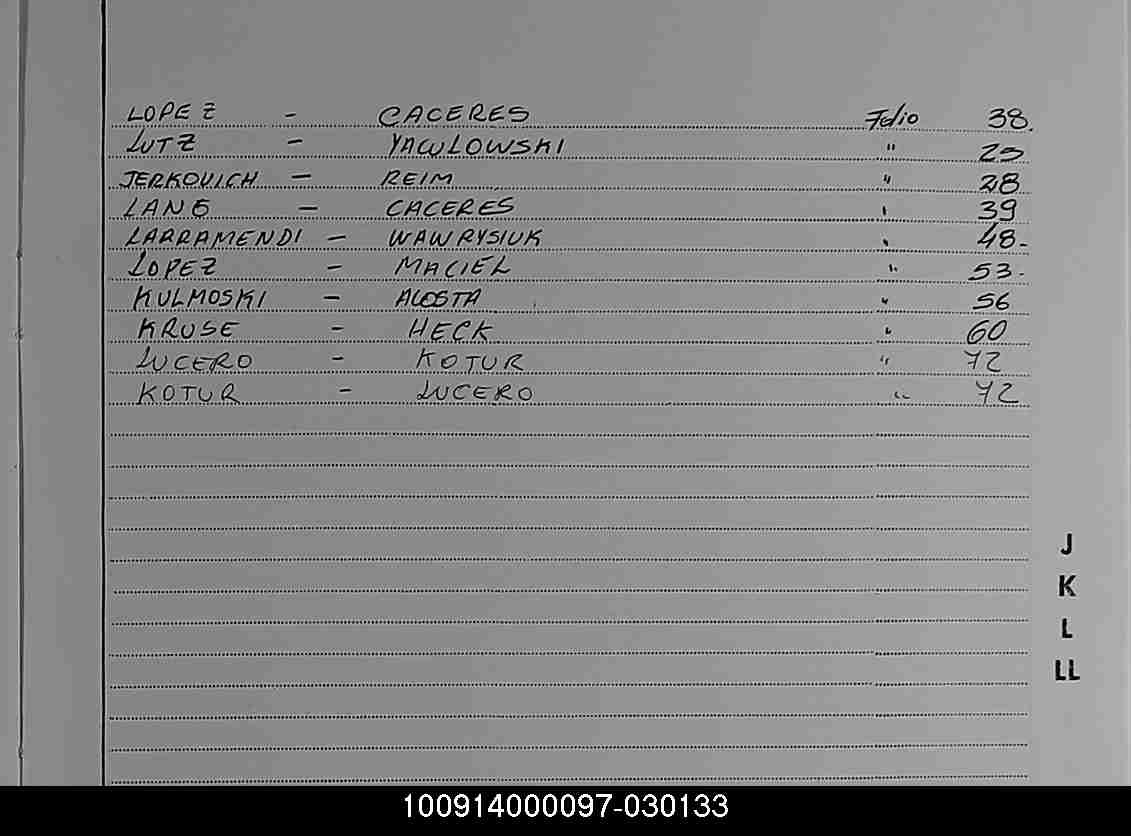 LOPEZ - CACERES Folio 38.
LUTZ - YAWLOWSKI " 25
JERKOVICH - REIM " 28
LANG - CACERES " 39
LARRAMENDI - WAWRYSIUK " 48-
LOPEZ - MACIEL " 53-
KULMOSKI - ACOSTA " 56
KRUSE - HECK " 60
LUCERO - KOTUR " 72
KOTUR - LUCERO " 72
J
K
L
LL
100914000097-030133